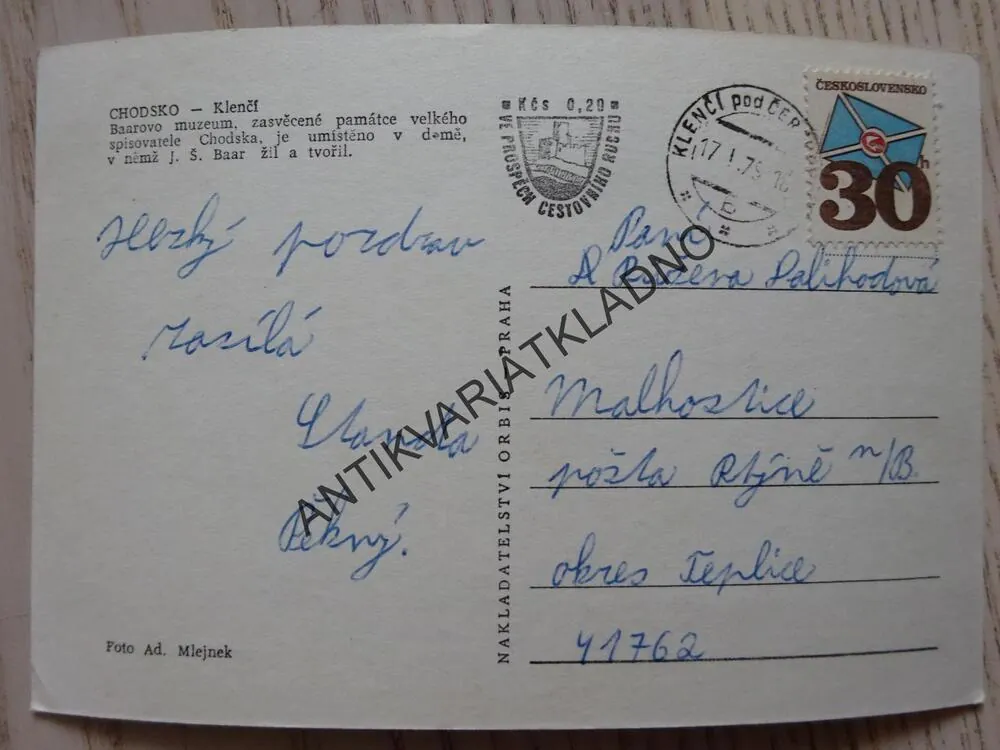 CHODSKO — Klenčí
Baarovo muzeum, zasvěcené památce velkého
spisovatele Chodska, je umístěno v domě,
v němž J. Š. Baar žil a tvořil.
Kčs 0,20
VE PROSPĚCH CESTOVNÍHO RUCHU
KLENČÍ pod ČER
17.1.75
ČESKOSLOVENSKO
30h
Hezký pozdrav
zasílá
Standa
Pěkný.
Paní
Božena
Malhostice
pošta Rtýně n/B.
okres Teplice
41762
NAKLADATELSTVÍ ORBIS, PRAHA
Foto Ad. Mlejnek
ANTIKVARIATKLADNO